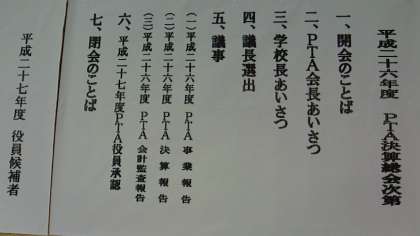 平成二十六年度　ＰＴＡ決算総会次第
一、開会のことば
二、ＰＴＡ会長あいさつ
三、学校長あいさつ
四、議長選出
五、議事
（一）平成二十六年度　ＰＴＡ　事業報告
（二）平成二十六年度　ＰＴＡ　決算報告
（三）平成二十六年度　ＰＴＡ　会計監査報告
六、平成二十七年度ＰＴＡ役員承認
七、閉会のことば
平成二十七年度　役員候補者